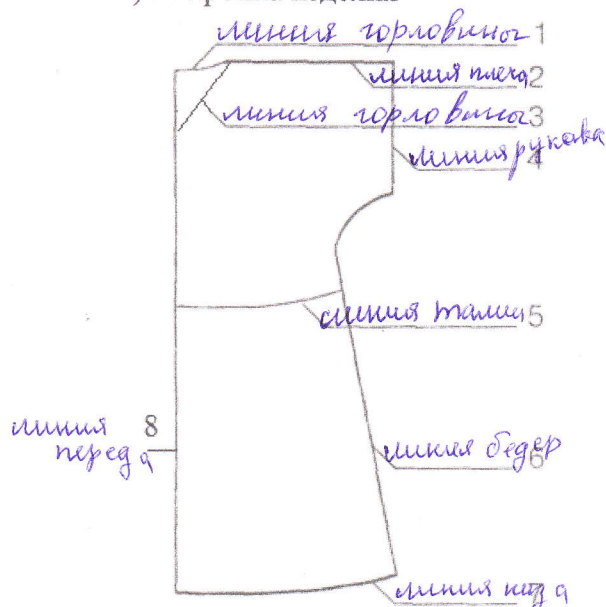 линия горловины 1
линия плеча 2
линия горловины 3
линия рукава
4
линия талии 5
линия 8
переда
линия бедер
6
линия низа
7